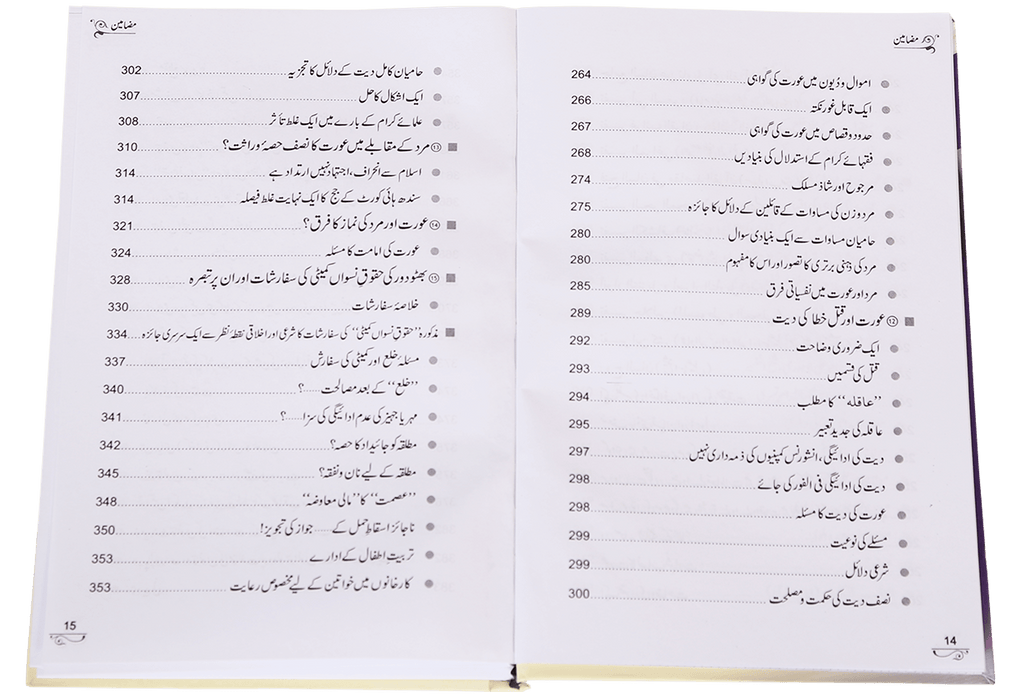 مضامین
اموال و دُیون میں عورت کی گواہی 264
ایک قابل غور نکتہ 266
حدود و قصاص میں عورت کی گواہی 267
فقہائے کرام کے استدلال کی بنیادیں 268
مرجوح اور شاذ مسلک 274
مرد و زن کی مساوات کے قائلین کے دلائل کا جائزہ 275
حامیان مساوات سے ایک بنیادی سوال 280
مرد کی ذہنی برتری کا تصور اور اس کا مفہوم 280
مرد اور عورت میں نفسیاتی فرق 285
⑫ عورت اور قتل خطا کی دیت 289
ایک ضروری وضاحت 292
قتل کی قسمیں 293
”عاقلہ“ کا مطلب 294
عاقلہ کی جدید تعبیر 295
دیت کی ادائیگی، انشورنس کمپنیوں کی ذمہ داری نہیں 297
دیت کی ادائیگی فی الفور کی جائے 298
عورت کی دیت کا مسئلہ 298
مسئلے کی نوعیت 299
شرعی دلائل 299
نصف دیت کی حکمت و مصلحت 300
14
مضامین
حامیان کامل دیت کے دلائل کا تجزیہ 302
ایک اشکال کا حل 307
علمائے کرام کے بارے میں ایک غلط تأثر 308
⑬ مرد کے مقابلے میں عورت کا نصف حصۂ وراثت؟ 310
اسلام سے انحراف، اجتہاد نہیں ارتداد ہے 314
سندھ ہائی کورٹ کے جج کا ایک نہایت غلط فیصلہ 314
⑭ عورت اور مرد کی نماز کا فرق؟ 321
عورت کی امامت کا مسئلہ 324
⑮ بھٹو دور کی حقوقِ نسواں کمیٹی کی سفارشات اور ان پر تبصرہ 328
خلاصۂ سفارشات 330
مذکورہ ”حقوقِ نسواں کمیٹی“ کی سفارشات کا شرعی اور اخلاقی نقطۂ نظر سے ایک سرسری جائزہ 334
مسئلۂ خلع اور کمیٹی کی سفارش 337
”خلع“ کے بعد مصالحت ......؟ 340
مہر یا جہیز کی عدم ادائیگی کی سزا ......؟ 341
مطلقہ کو جائیداد کا حصہ؟ 342
مطلقہ کے لیے نان و نفقہ؟ 345
”عصمت“ کا ”مالی معاوضہ“ 348
ناجائز اسقاطِ حمل کے ...... جواز کی تجویز! 350
تربیتِ اطفال کے ادارے 353
کارخانوں میں خواتین کے لیے مخصوص رعایت 353
15